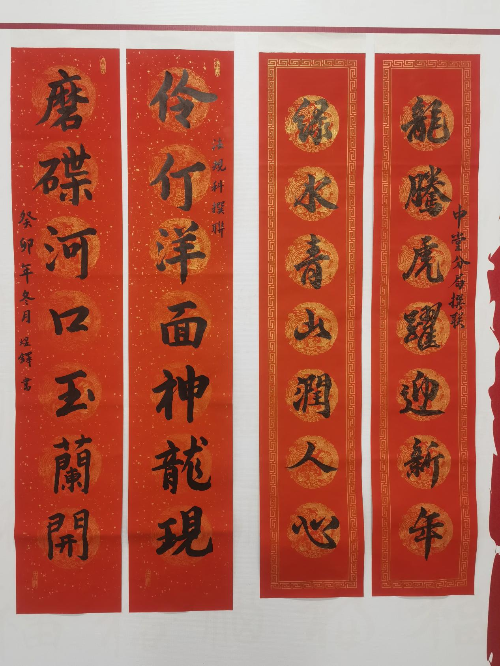 龍騰虎躍迎新年
中堂分局撰联
綠水青山潤人心
伶仃洋面神龍現
法規科撰聯
磨碟河口玉蘭開
癸卯年冬月 書